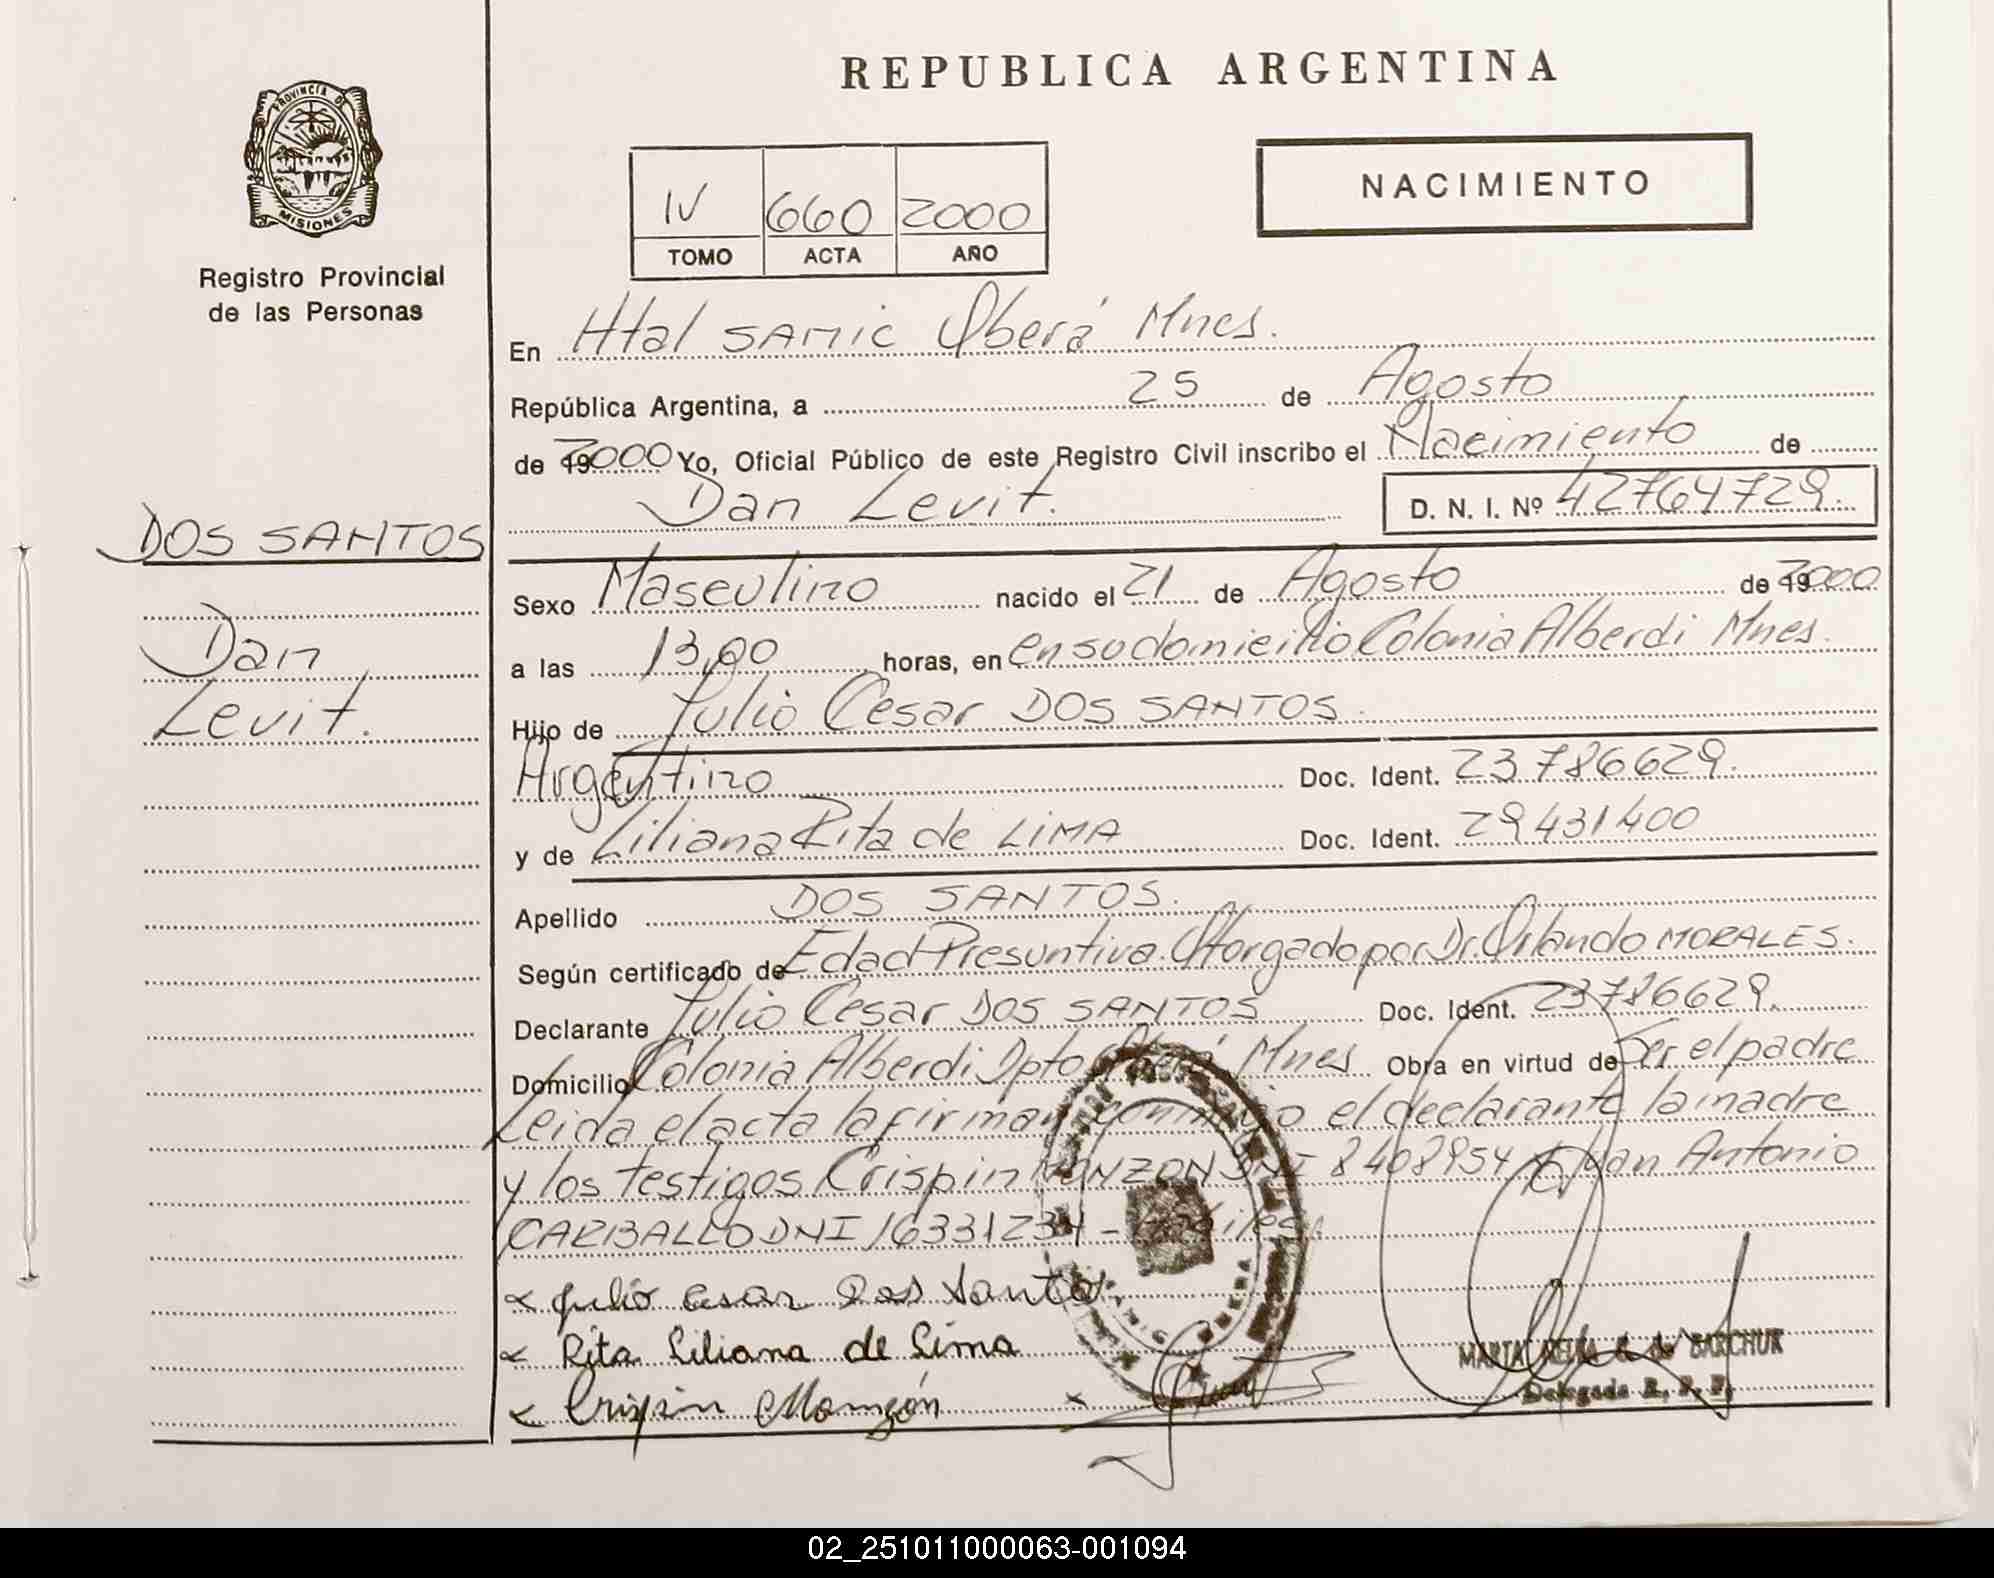 REPUBLICA ARGENTINA
PROVINCIA DE MISIONES
Registro Provincial
de las Personas
NACIMIENTO
IV 660 2000
TOMO ACTA AÑO
En Htal SAMIC Oberá Mnes.
República Argentina, a 25 de Agosto
de 192000 Yo, Oficial Público de este Registro Civil inscribo el Nacimiento de
Dan Levit. D. N. I. Nº 42764729.
DOS SANTOS
Dan
Levit.
Sexo Masculino nacido el 21 de Agosto de 192000
a las 13,00 horas, en en su domicilio Colonia Alberdi Mnes.
Hijo de Julio Cesar DOS SANTOS.
Argentino Doc. Ident. 23786629.
y de Liliana Rita de LIMA Doc. Ident. 29431400
Apellido DOS SANTOS.
Según certificado de Edad Presuntiva. Otorgado por Dr. Orlando MORALES.
Declarante Julio Cesar DOS SANTOS Doc. Ident. 23786629.
Domicilio Colonia Alberdi Dpto Oberá Mnes Obra en virtud de Ser el padre
Leida el acta la firman conmigo el declarante la madre
y los testigos Crispin MONZON DNI 8408954 Juan Antonio
CARBALLO DNI 16331234 -
x Julio Cesar Dos Santos
x Rita Liliana de Lima
x Crispin Monzón x
MARTA de BARCHUK
Delegada R. P. P.
02_251011000063-001094